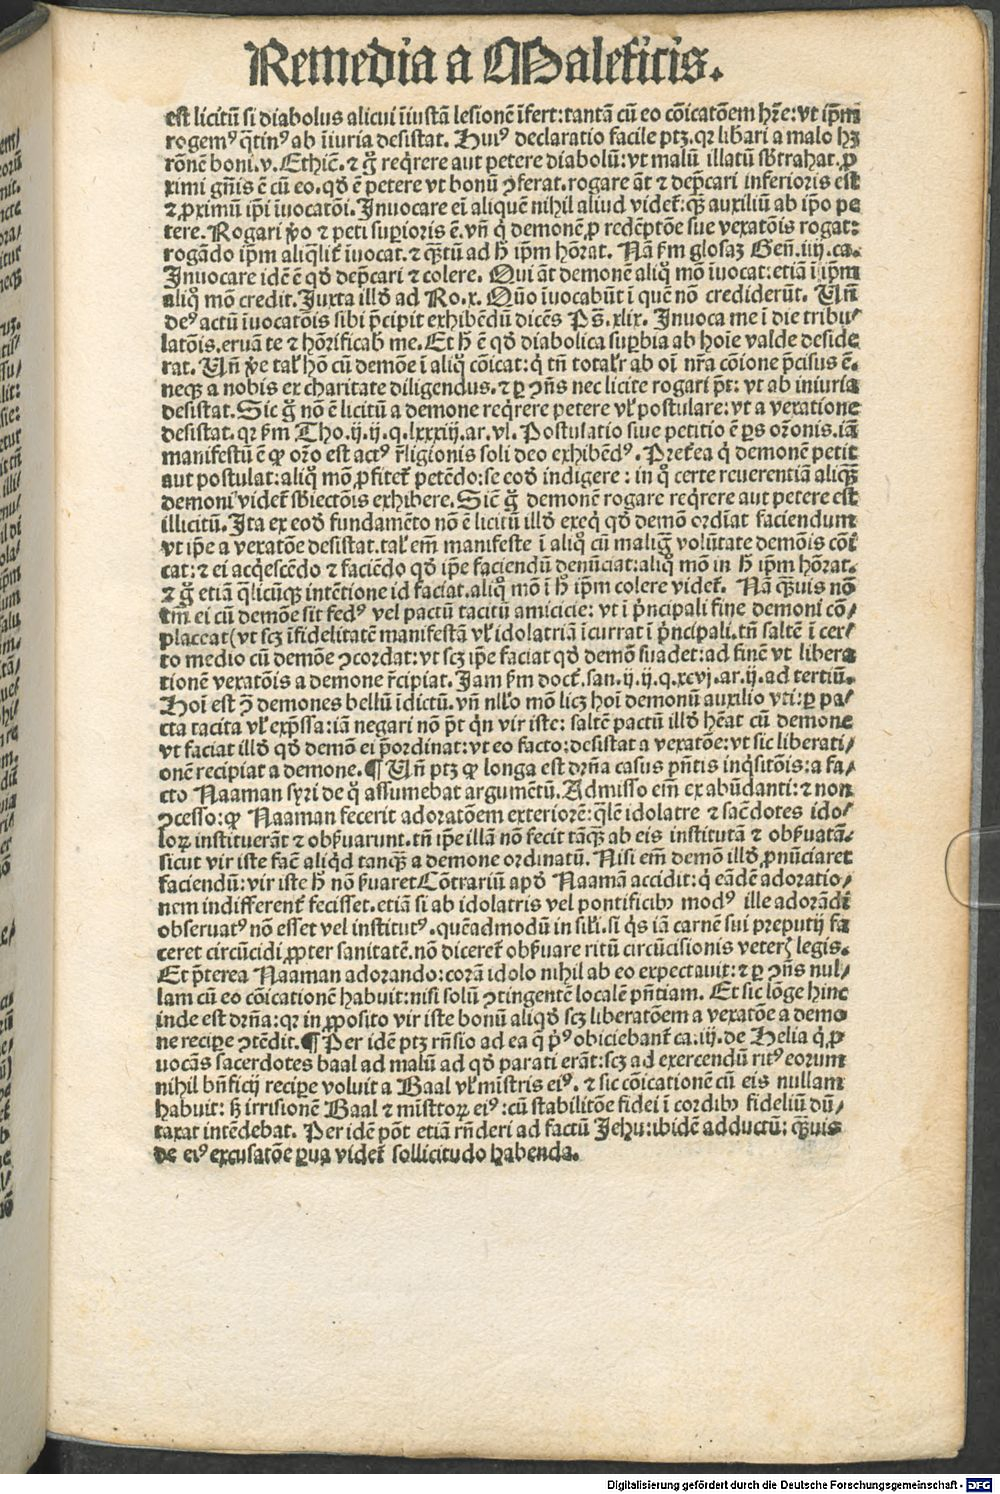 Remedia a Maleficis.
est licitū si diabolus alicui īiustā lesionē īfert: tantā cū eo cōicatōem hr̄e: vt ip̄m
rogemꝰ q̄tinꝰ ab īiuria desistat. Huiꝰ declaratio facile ptꝫ. qꝛ lib̄ari a malo hꝫ
rōnē boni. v. Ethic̄. ⁊ g̊ req̄rere aut petere diabolū: vt malū illatū sb̄trahat. ꝓ
ximi gn̄is ē cū eo. qd̄ ē petere vt bonū ꝯferat. rogare āt ⁊ dep̄cari inferioris est
⁊ ꝓximū ip̄i īuocatōi. Inuocare eī aliquē nihil aliud videt̄: qꝫ̄ auxiliū ab ip̄o pe
tere. Rogari v̊o ⁊ peti suꝑioris ē. vn̄ q̇ demonē ꝓ redēptōe sue vexatōis rogat:
rogādo ip̄m aliq̄lit̄ īuocat. ⁊ q̄ꝫtū ad h̄ ip̄m hōrat. Nā ẜm glosaꝫ Gen̄. iiij. ca.
Inuocare idē ē qd̄ dep̄cari ⁊ colere. Qui āt demonē aliq̊ mō īuocat: etiā ī ip̄m
aliq̊ mō credit. Juxta illd̄ ad Ro. x. Quō īuocabūt ī quē nō crediderūt. Vn̄
deꝰ actū īuocatōis sibi p̄cipit exhibēdū dicēs Ps̄. xlix. Inuoca me ī die tribu⸗
latōis. eruā te ⁊ hōrificab̄ me. Et h̄ ē qd̄ diabolica suꝑbia ab hoīe valde deside
rat. Vn̄ v̊e tal̄ hō cū demōe ī aliq̊ cōicat: q̇ tn̄ total̄r ab oī nr̄a cōione p̄cisus ē.
neqꝫ a nobis ex charitate diligendus. ⁊ ꝑ ꝯn̄s nec licite rogari p̄t: vt ab iniuria
desistat. Sic g̊ nō ē licitū a demone req̄rere petere vl̄ postulare: vt a vexatione
desistat. qꝛ ẜm Tho. ij. ij. q. lxxxiij. ar. vl. Postulatio siue petitio ē ꝑs or̄onis. iā
manifestū ē ꝙ or̄o est actꝰ r̄ligionis soli deo exhibēdꝰ. Pret̄ea q̇ demonē petit
aut postulat: aliq̊ mō ꝓfitet̄ petēdo: se eod̄ indigere: in q̊ certe reuerentiā aliqꝫ̄
demoni videt̄ sb̄iectōis exhibere. Sic̄ g̊ demonē rogare req̄rere aut petere est
illicitū. Ita ex eod̄ fundamēto nō ē licitū illd̄ exeq̇ qd̄ demō ordīat faciendum
vt ip̄e a vexatōe desistat. tal̄ em̄ manifeste ī aliq̊ cū maliḡ volūtate demōis cōī
cat: ⁊ ei acq̇escēdo ⁊ faciēdo qd̄ ip̄e faciendū denūciat: aliq̊ mō in h̄ ip̄m hōrat.
⁊ g̊ etiā q̄licūqꝫ intētione id faciat. aliq̊ mō ī h̄ ip̄m colere videt̄. Nā qꝫ̄uis nō
tm̄ ei cū demōe sit fedꝰ vel pactū tacitū amicicie: vt ī ṗncipali fine demoni cō⸗
placeat (vt scꝫ īfidelitatē manifestā vl̄ idolatriā īcurrat ī ṗncipali. tn̄ saltē ī cer⸗
to medio cū demōe ꝯcordat: vt scꝫ ip̄e faciat qd̄ demō suadet: ad finē vt libera
tionē vexatōis a demone r̄cipiat. Jam ẜm doct̄. san. ij. ij. q. xcvj. ar. ij. ad tertiū.
Hoī est ꝯ̄ demones bellū īdictū. vn̄ nll̄o mō licꝫ hoī demonū auxilio vti: ꝑ pa⸗
cta tacita vl̄ exp̄ssa: iā negari nō p̄t q̇n vir iste: saltē pactū illd̄ hēat cū demone
vt faciat illd̄ qd̄ demō ei p̄ordinat: vt eo facto: desistat a vexatōe: vt sic liberati⸗
onē recipiat a demone. ¶ Vn̄ ptꝫ ꝙ longa est dr̄n̄a casus p̄ntis inq̇sitōis: a fa⸗
cto Naaman syri de q̊ assumebat argumētū. Admisso eīm ex abūdanti: ⁊ non
ꝯcesso: ꝙ Naaman fecerit adoratōem exteriorē: q̄lē idolatre ⁊ sac̄dotes ido⸗
loꝝ instituerāt ⁊ obẜuarunt. tn̄ ip̄e illā nō fecit tāqꝫ̄ ab eis institutā ⁊ obẜuatā.
sicut vir iste fac̄ aliqd̄ tanqꝫ̄ a demone ordinatū. Nisi em̄ demō illd̄ ꝓnūciaret
faciendū: vir iste h̄ nō ẜuaret Cōtrariū apd̄ Naamā accidit: q̇ eādē adoratio⸗
nem indifferent̄ fecisset. etiā si ab idolatris vel pontificibꝫ modꝰ ille adorādi
obseruatꝰ nō esset vel institutꝰ. quēadmodū in sil̄i. si q̇s iā carnē sui preputij fa
ceret circūcidi ꝓpter sanitatē. nō diceret̄ obẜuare ritū circūcisionis veteꝝ legis.
Et p̄terea Naaman adorando: corā idolo nihil ab eo expectauit: ⁊ ꝑ ꝯn̄s nul⸗
lam cū eo cōicationē habuit: nisi solū ꝯtingentē localē pn̄tiam. Et sic lōge hinc
inde est dr̄n̄a: qꝛ in ꝓposito vir iste bonū aliqd̄ scꝫ liberatōem a vexatōe a demo
ne recipe ꝯtēdit. ¶ Per idē ptꝫ rn̄sio ad ea q̄ ṗꝰ obiciebant̄ ca. iij. de Helia q̇ ꝓ
uocās sacerdotes baal ad malū ad qd̄ parati erāt: scꝫ ad exercendū ritꝰ eorum
nihil bn̄ficij recipe voluit a Baal vl̄ mīstris eiꝰ. ⁊ sic cōicationē cū eis nullam
habuit: sꝫ irrisionē Baal ⁊ mīstroꝝ eiꝰ: cū stabilitōe fidei ī cordibꝫ fideliū dū⸗
taxat intēdebat. Per idē pōt etiā rn̄deri ad factū Jehu: ibidē adductū: qꝫ̄uis
de eiꝰ excusatōe ꝑua videt̄ sollicitudo habenda.
Digitalisierung gefördert durch die Deutsche Forschungsgemeinschaft - DFG